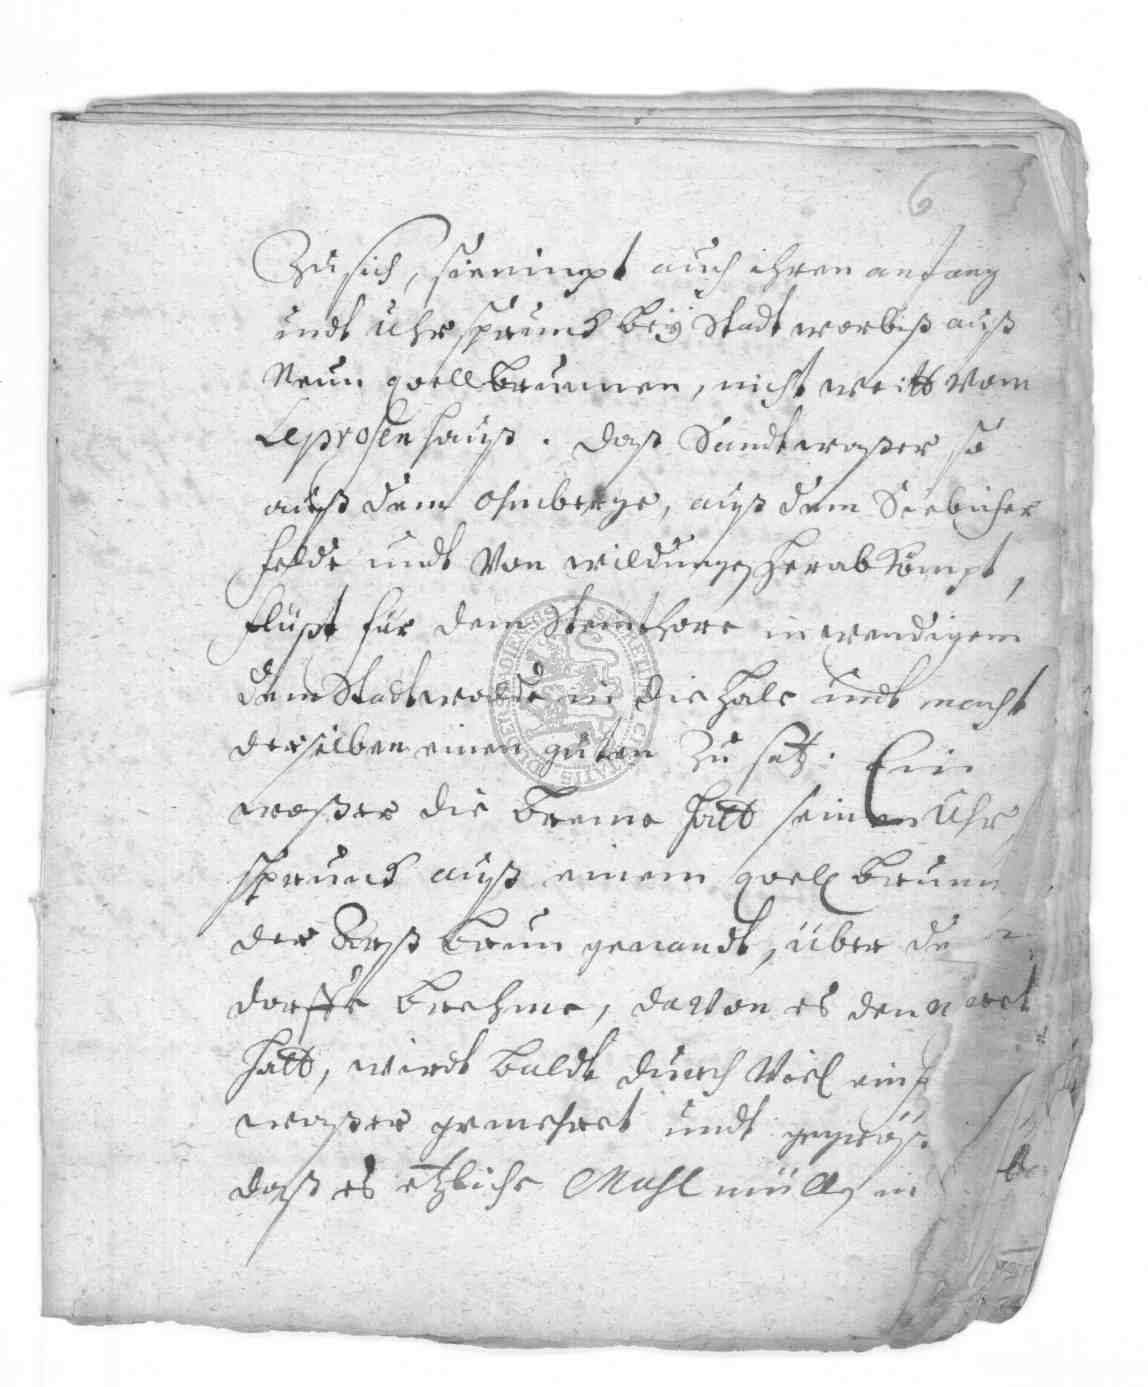 6
Zu sich, sie nimpt auch ihren anfang
undt Uhrsprunck beÿ Stadt worbiß auß
Neun quellbrunnen, nicht weitt vom
Leprosen hauß. Daß Sundtwaßer so
auß dem Ohmberge, auß dem
felde undt Von wildungen herab kömpt,
flüßt für dem Steinthore inwendigem
dem Stadtwalde in die Hale undt macht
derselben einen guten Zusatz. Ein
waßer die Breme hatt seinen Uhr
sprunck auß einem quell brunn
der brun genandt, über de
dorffe Brehme, davon es den
hatt, wirdt baldt durch Viel
waßer gemehret undt
daß es etzliche Mahl müllen